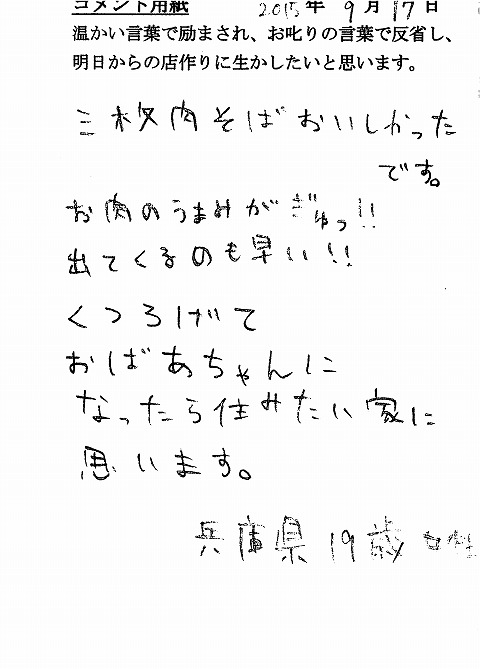 コメント用紙 2015年 9月17日
温かい言葉で励まされ、お叱りの言葉で反省し、
明日からの店作りに生かしたいと思います。
三枚肉そばおいしかった
です。
お肉のうまみがぎゅっ!!
出てくるのも早い!!
くつろげて
おばあちゃんに
なったら住みたい家に
思います。
兵庫県 19歳 女性